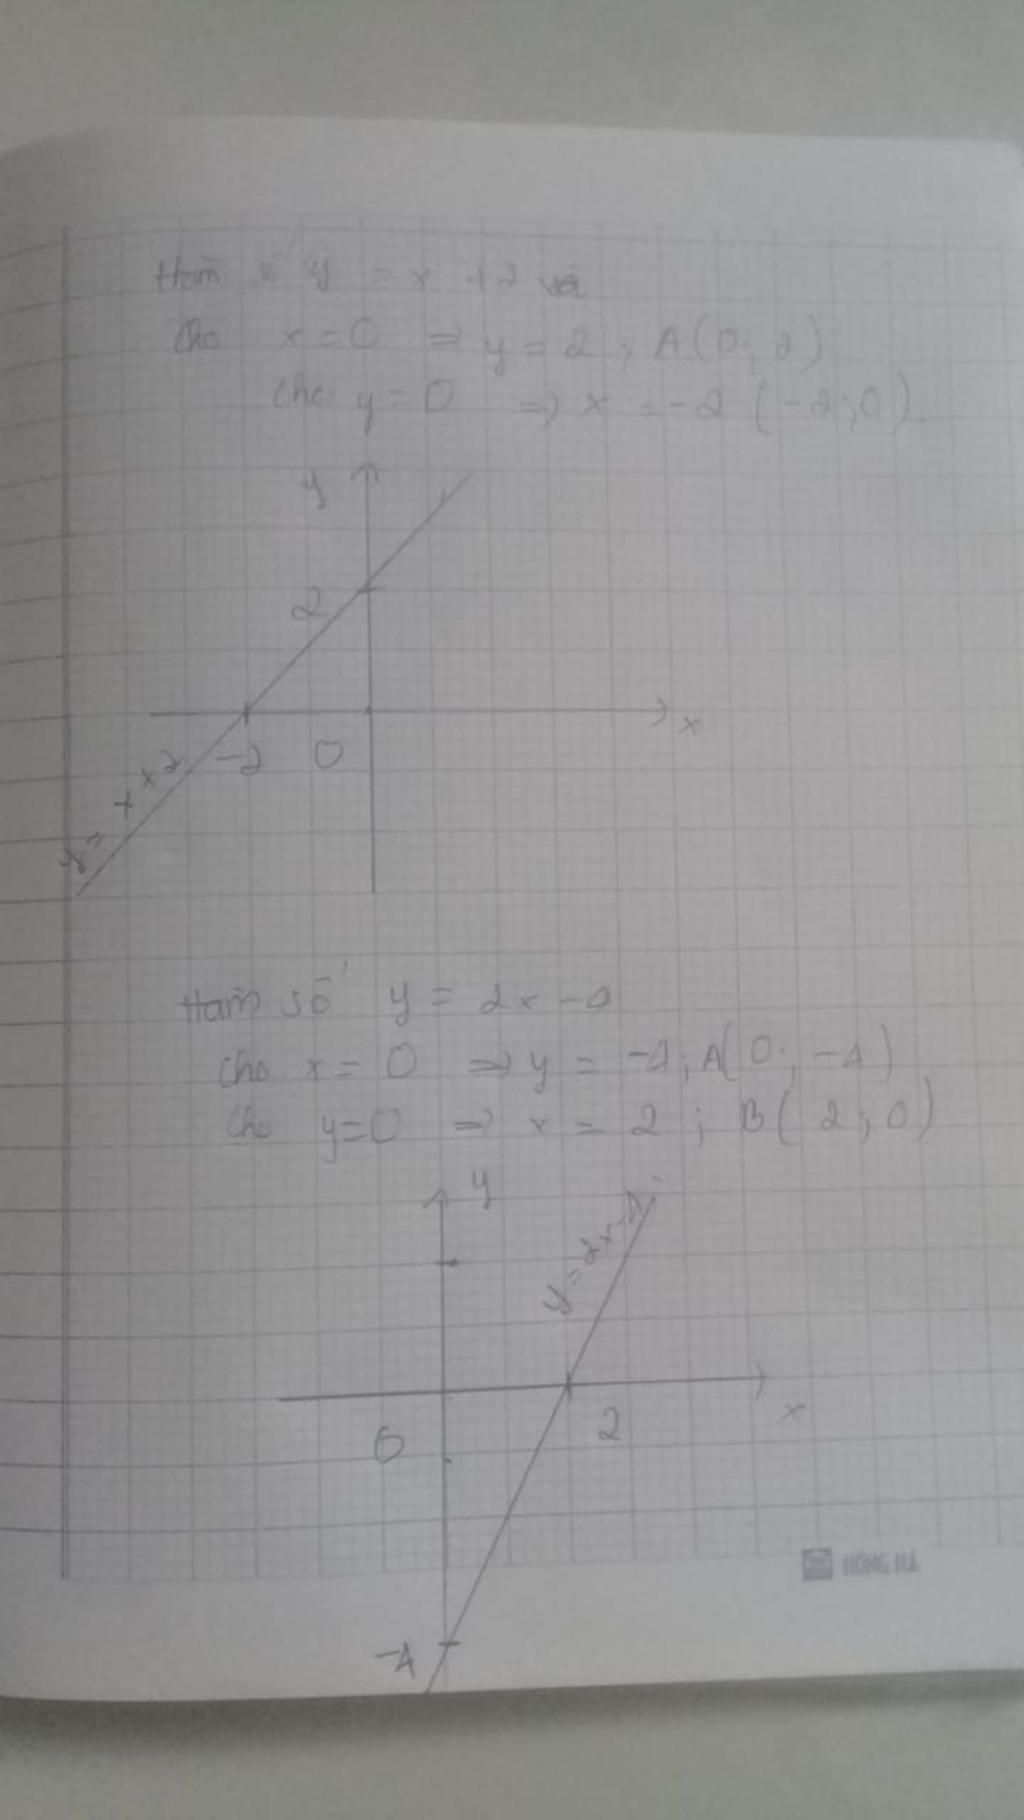 Hàm số y = x + 2
Cho x = 0 ⇒ y = 2 ; A(0; 2)
cho y = 0 ⇒ x = -2 (-2; 0)
y
2
-2 0 x
y = x + 2
Hàm số y = 2x - 4
Cho x = 0 ⇒ y = -4 ; A(0; -4)
Cho y = 0 ⇒ x = 2 ; B(2; 0)
y
y = 2x - 4
0 2 x
HỒNG HÀ
-4